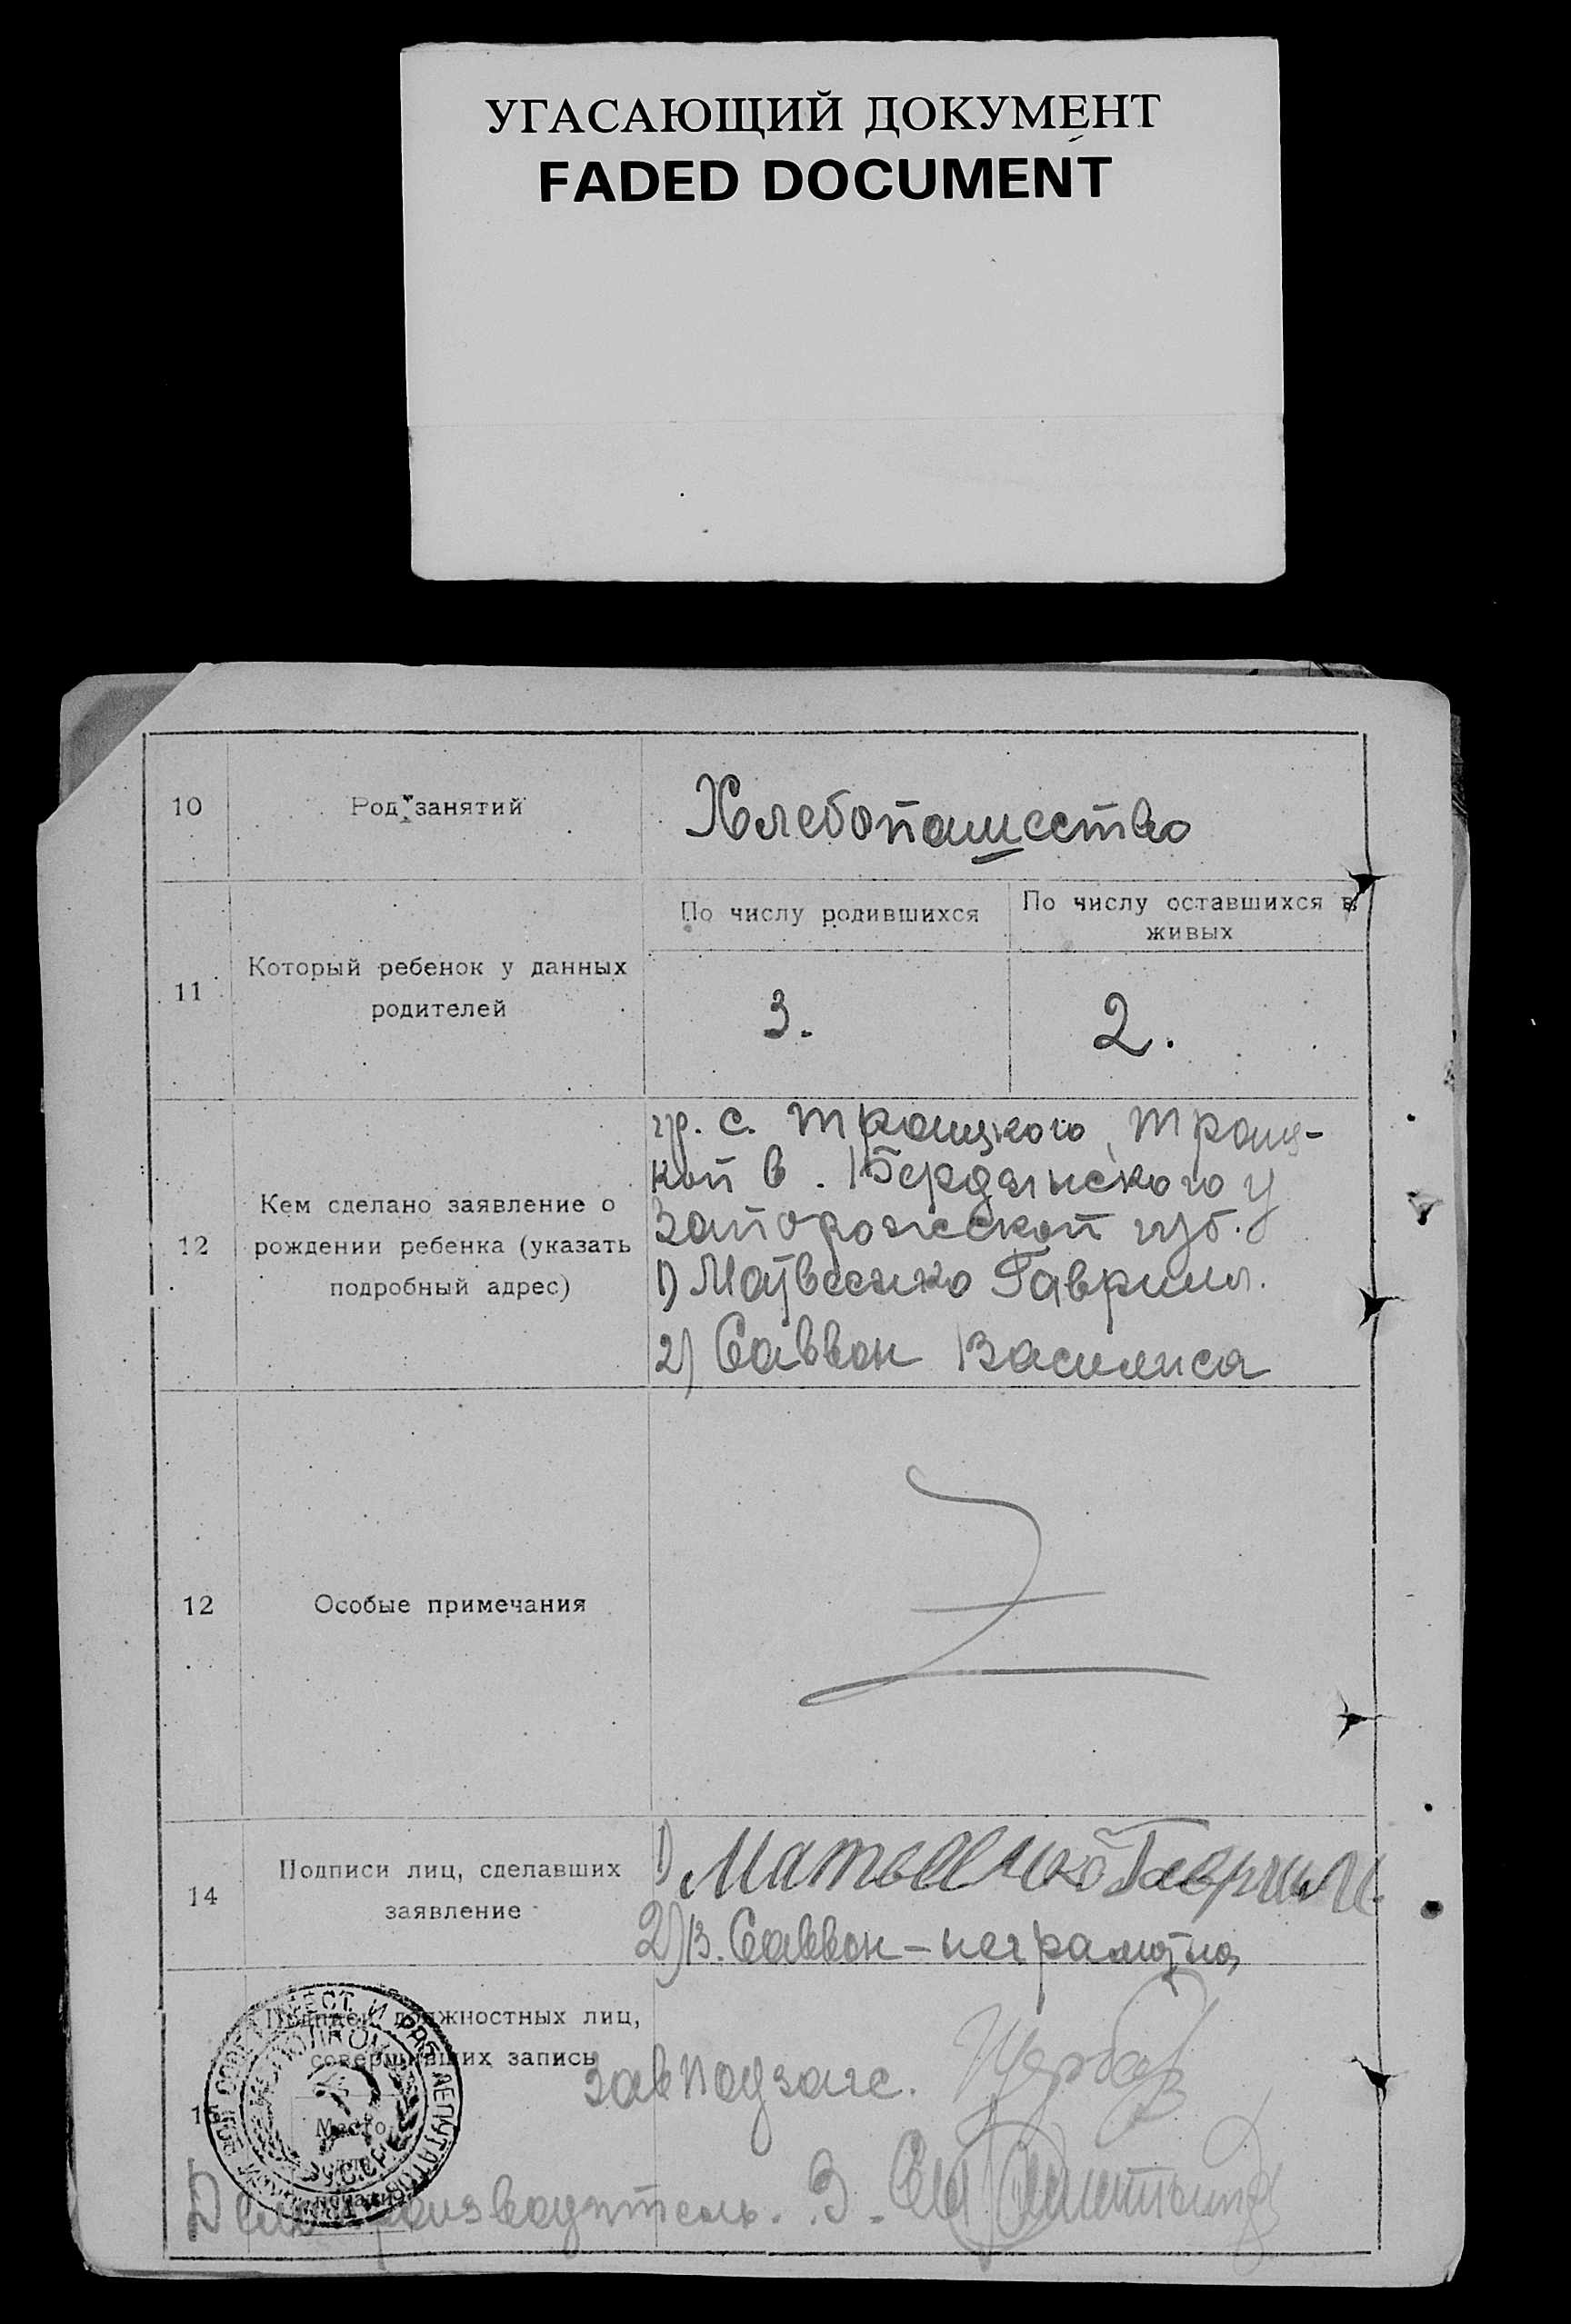 УГАСАЮЩИЙ ДОКУМЕНТ
FADED DOCUMENT
10
Род занятий
Хлебопашество
11
Который ребенок у данных
родителей
По числу родившихся
По числу оставшихся в
живых
3.
2.
12
Кем сделано заявление о
рождении ребенка (указать
подробный адрес)
гр. с. Троицкого, Троиц-
кой в. Бердянского у
Запорожской губ.
1) Матвеенко Гавриил.
2) Саввон Василиса
12
Особые примечания
14
Подписи лиц, сделавших
заявление
1) Матвеенко Гавриил
2) В. Саввон – неграмотна
15
Подписи должностных лиц,
совершивших запись
Место
для
печати
завподзагс.
Делопроизводитель. З.